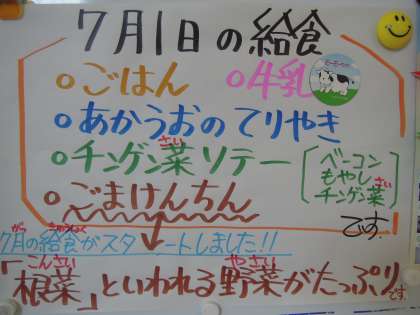 7月1日の給食
ごはん 牛乳
あかうおのてりやき
チンゲン菜ソテー
さい
ベーコン
もやし
チンゲン菜
さい
ごまけんちん
です。
7月の給食がスタートしました!!
がつ きゅうしょく
「根菜」といわれる野菜がたっぷりです。
こんさい やさい